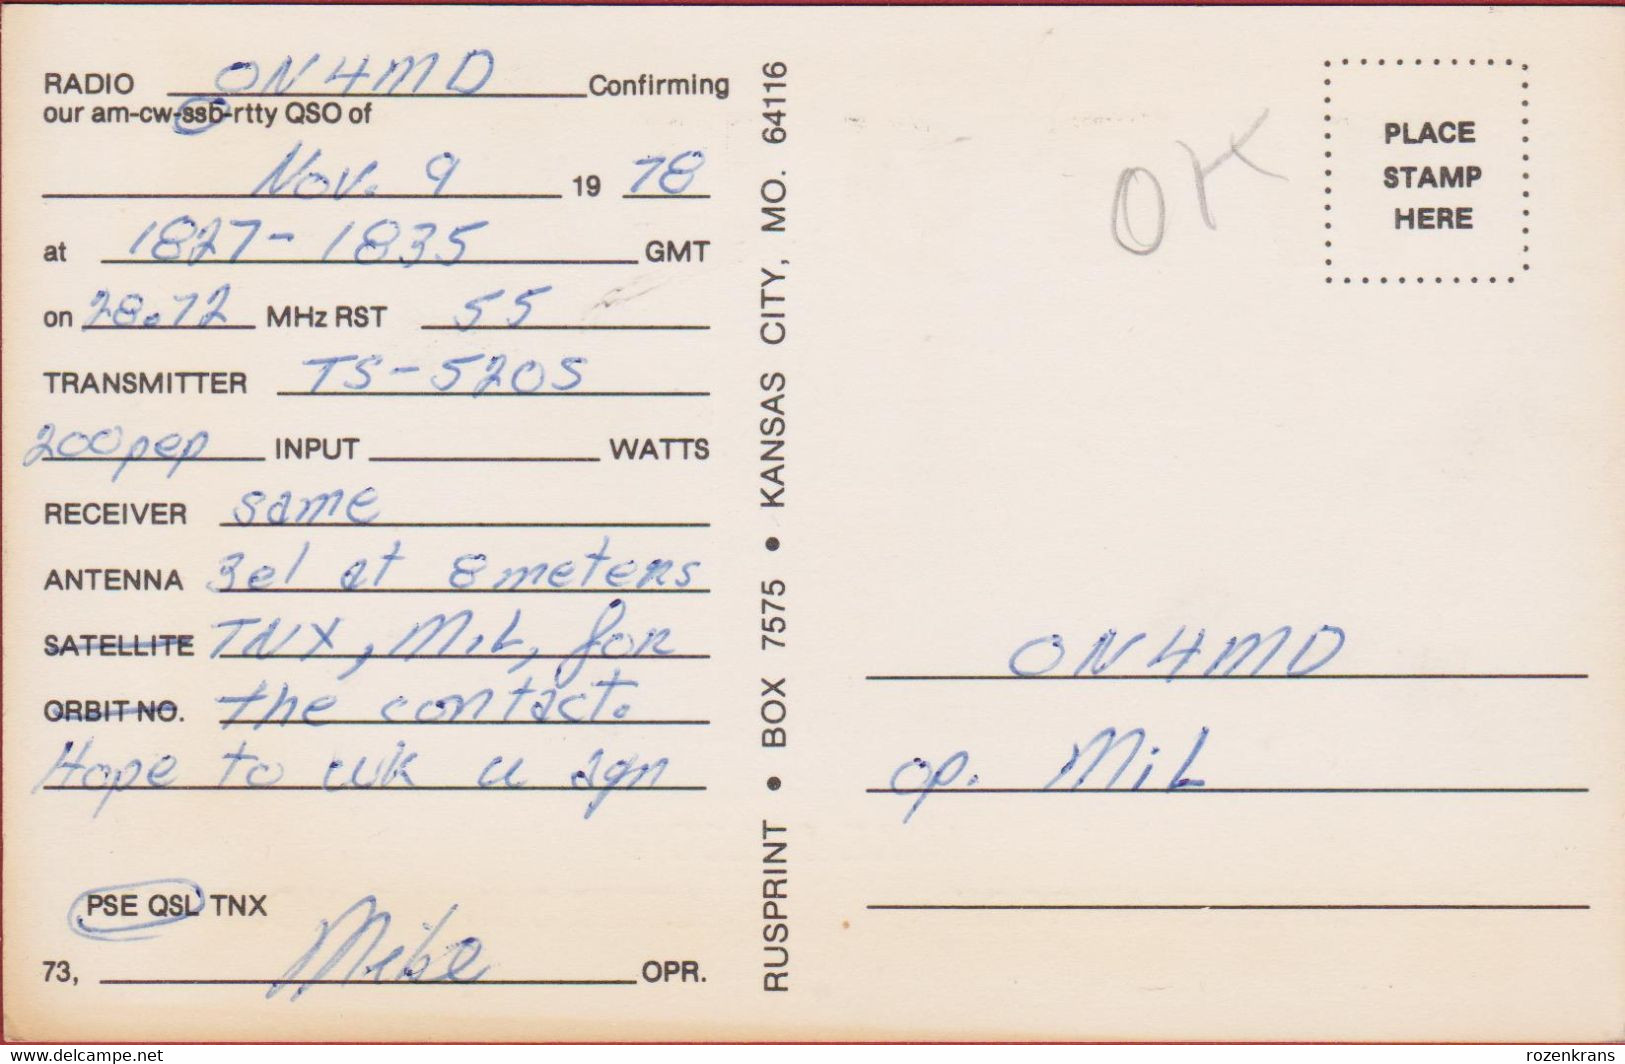 RADIO ON4MD Confirming
our am-cw-ssb-rtty QSO of
Nov. 9 19 78
at 1827-1835 GMT
on 28.72 MHz RST 55
TRANSMITTER TS-520S
200pep INPUT WATTS
RECEIVER same
ANTENNA 3el at 8 meters
SATELLITE TNX, MiL, for
ORBIT NO. the contact.
Hope to wk u agn
PSE QSL TNX
73, Mike OPR.
RUSPRINT • BOX 7575 • KANSAS CITY, MO. 64116
OK
PLACE
STAMP
HERE
ON4MD
op. MiL
www.delcampe.net
rozenkrans